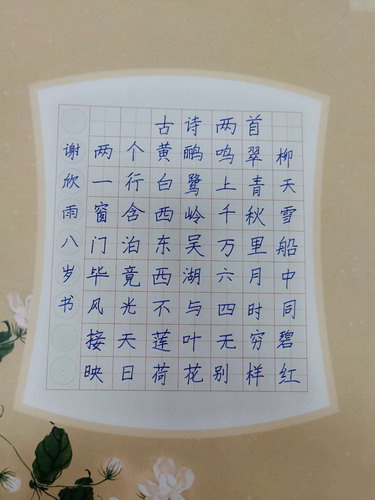 古诗两首
两个黄鹂鸣翠柳
一行白鹭上青天
窗含西岭千秋雪
门泊东吴万里船
毕竟西湖六月中
风光不与四时同
接天莲叶无穷碧
映日荷花别样红
谢欣雨八岁书